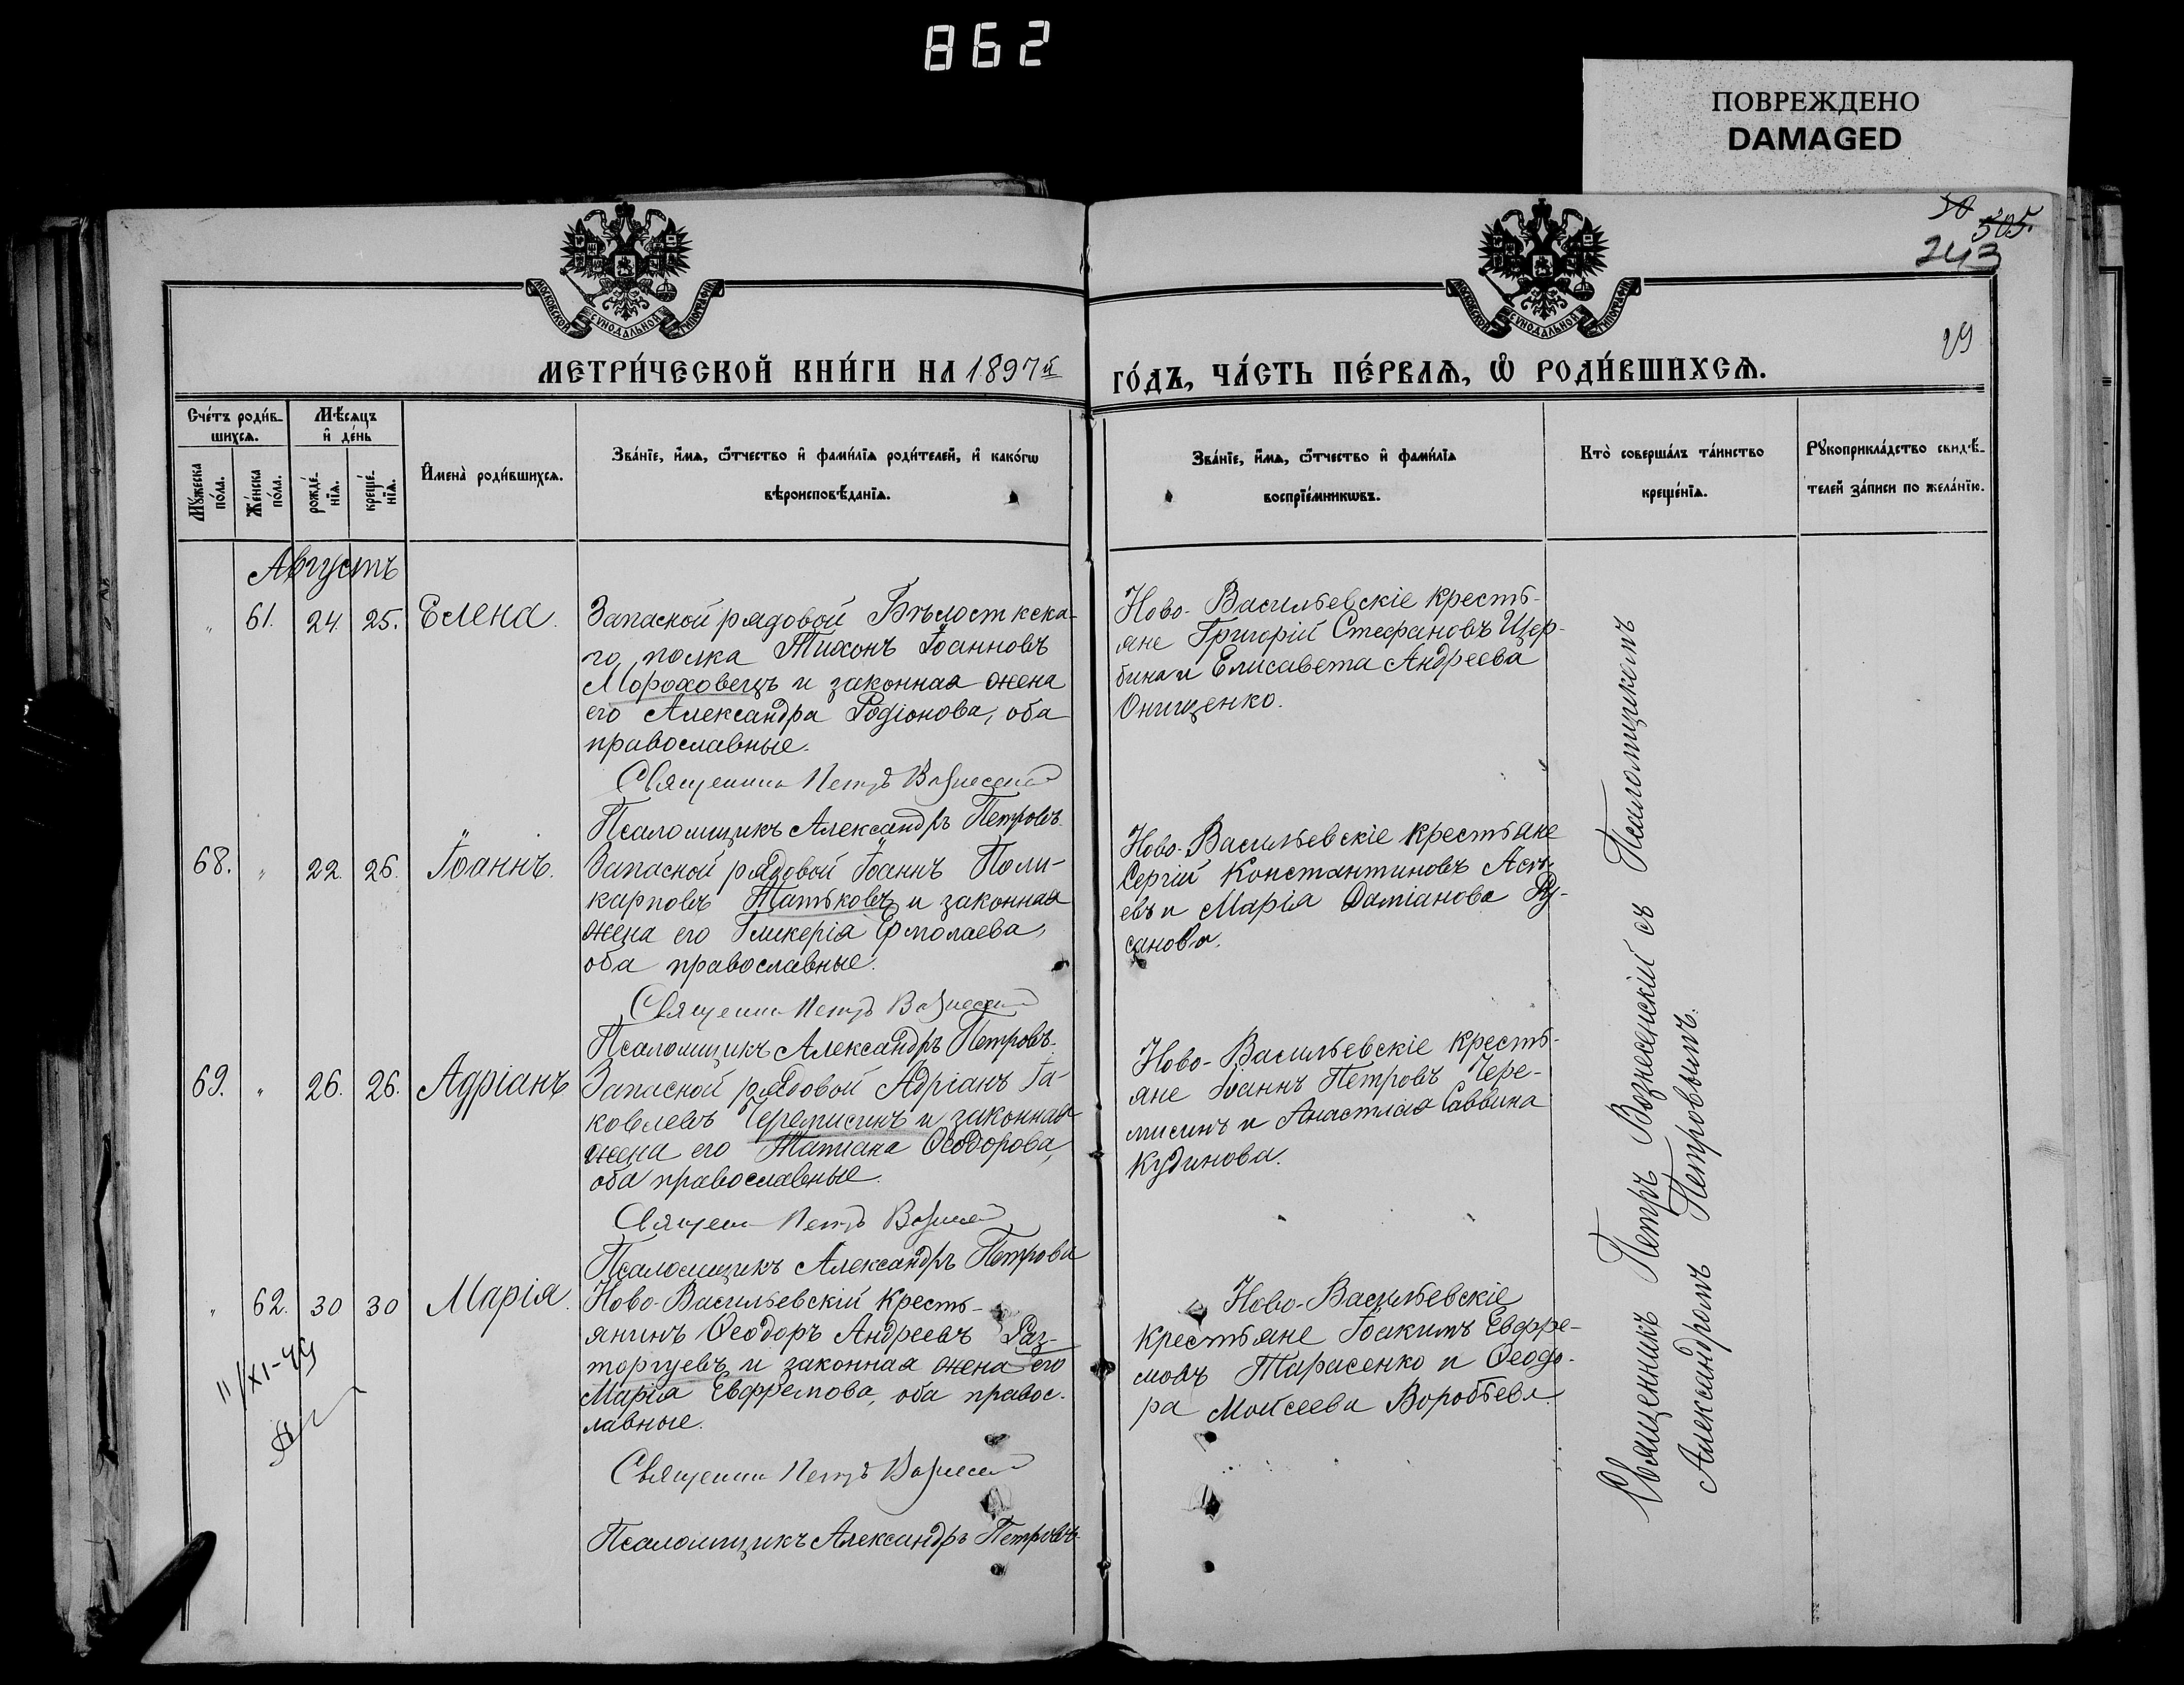 862
ПОВРЕЖДЕНО
DAMAGED
50
505.
243
29
МОСКОВСКОЙ СѴНОДАЛЬНОЙ ТИПОГРАФІИ
МОСКОВСКОЙ СѴНОДАЛЬНОЙ ТИПОГРАФІИ
МЕТРИ́ЧЕСКОЙ КНИ́ГИ НА 1897й
ГО́ДЪ, ЧА́СТЬ ПЕ́РВАѦ, Ѡ РОДИ́ВШИХСѦ.
Сче́тъ роди́в-
шихсѧ.
Мꙋжеска по́ла.
Же́нска по́ла.
Мѣ́сѧцъ
и҆ де́нь
рожде́-
нїѧ.
креще́-
нїѧ.
И҆мена̀ роди́вшихсѧ.
Зва́нїе, и҆́мѧ, ѻ҆́тчество и҆ фами́лїѧ роди́телей, и҆ како́гѡ
вѣроисповѣ́данїѧ.
Зва́нїе, и҆́мѧ, ѻ҆́тчество и҆ фами́лїѧ
воспрїе́мникѡвъ.
Кто̀ соверша́лъ та́инство
креще́нїѧ.
Рꙋкоприкла́дство свидѣ́-
телей за́писи по жела́нїю.
Августъ
" 61. 24. 25. Елена.
Запасной рядовой Бѣлосткска-
го полка Тихонъ Іоанновъ
Мороховецъ и законная жена
его Александра Родіонова, оба
православные.
Священникъ Петръ Вознесенскій
Псаломщикъ Александръ Петровъ.
Ново-Васильевскіе кресть-
яне Григорій Стефановъ Щер-
бина и Елисавета Андреева
Онищенко.
68. " 22. 26. Іоаннъ.
Запасной рядовой Іоаннъ Поли-
карповъ Татьковъ и законная
жена его Гликерія Ермолаева,
оба православные.
Священникъ Петръ Вознесенскій
Псаломщикъ Александръ Петровъ.
Ново-Васильевскіе крестьяне
Сергій Константиновъ
евъ и Марія Даміанова Ру-
санова.
69. " 26. 26. Адріанъ
Запасной рядовой Адріанъ Іа-
ковлевъ Черемисинъ и законная
жена его Татіана Ѳеодорова,
оба православные.
Священникъ Петръ Вознесенскій
Псаломщикъ Александръ Петровъ
Ново-Васильевскіе кресть-
яне Іоаннъ Петровъ Чере-
мисинъ и Анастасія Саввина
Кудинова.
" 62. 30 30 Марія.
Ново-Васильевскій кресть-
янинъ Ѳеодоръ Андреевъ Раз-
торгуевъ и законная жена его
Марія Евфремова, оба правос-
лавные.
Священникъ Петръ Вознесенскій
Псаломщикъ Александръ Петровъ
Ново-Васильевскіе
крестьяне Іоакимъ Евфре-
мовъ Тарасенко и Ѳеодо-
ра Моисеева Воробьева.
11/XI-49
Священникъ Петръ Вознесенскій съ Псаломщикомъ
Александромъ Петровымъ.